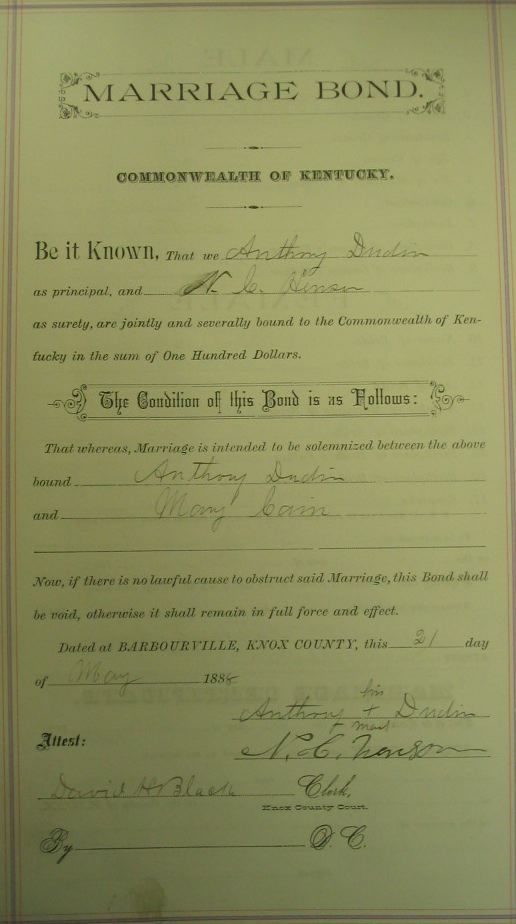 MARRIAGE BOND.
COMMONWEALTH OF KENTUCKY.
Be it Known, That we Anthony
as principal, and N. C.
as surety, are jointly and severally bound to the Commonwealth of Ken-
tucky in the sum of One Hundred Dollars.
The Condition of this Bond is as Follows:
That whereas, Marriage is intended to be solemnized between the above
bound Anthony
and Mary Cain
Now, if there is no lawful cause to obstruct said Marriage, this Bond shall
be void, otherwise it shall remain in full force and effect.
Dated at BARBOURVILLE, KNOX COUNTY, this 21 day
of May 1888
his
Anthony +
mark
Attest: N. C.
David H Black Clerk,
Knox County Court.
By D. C.